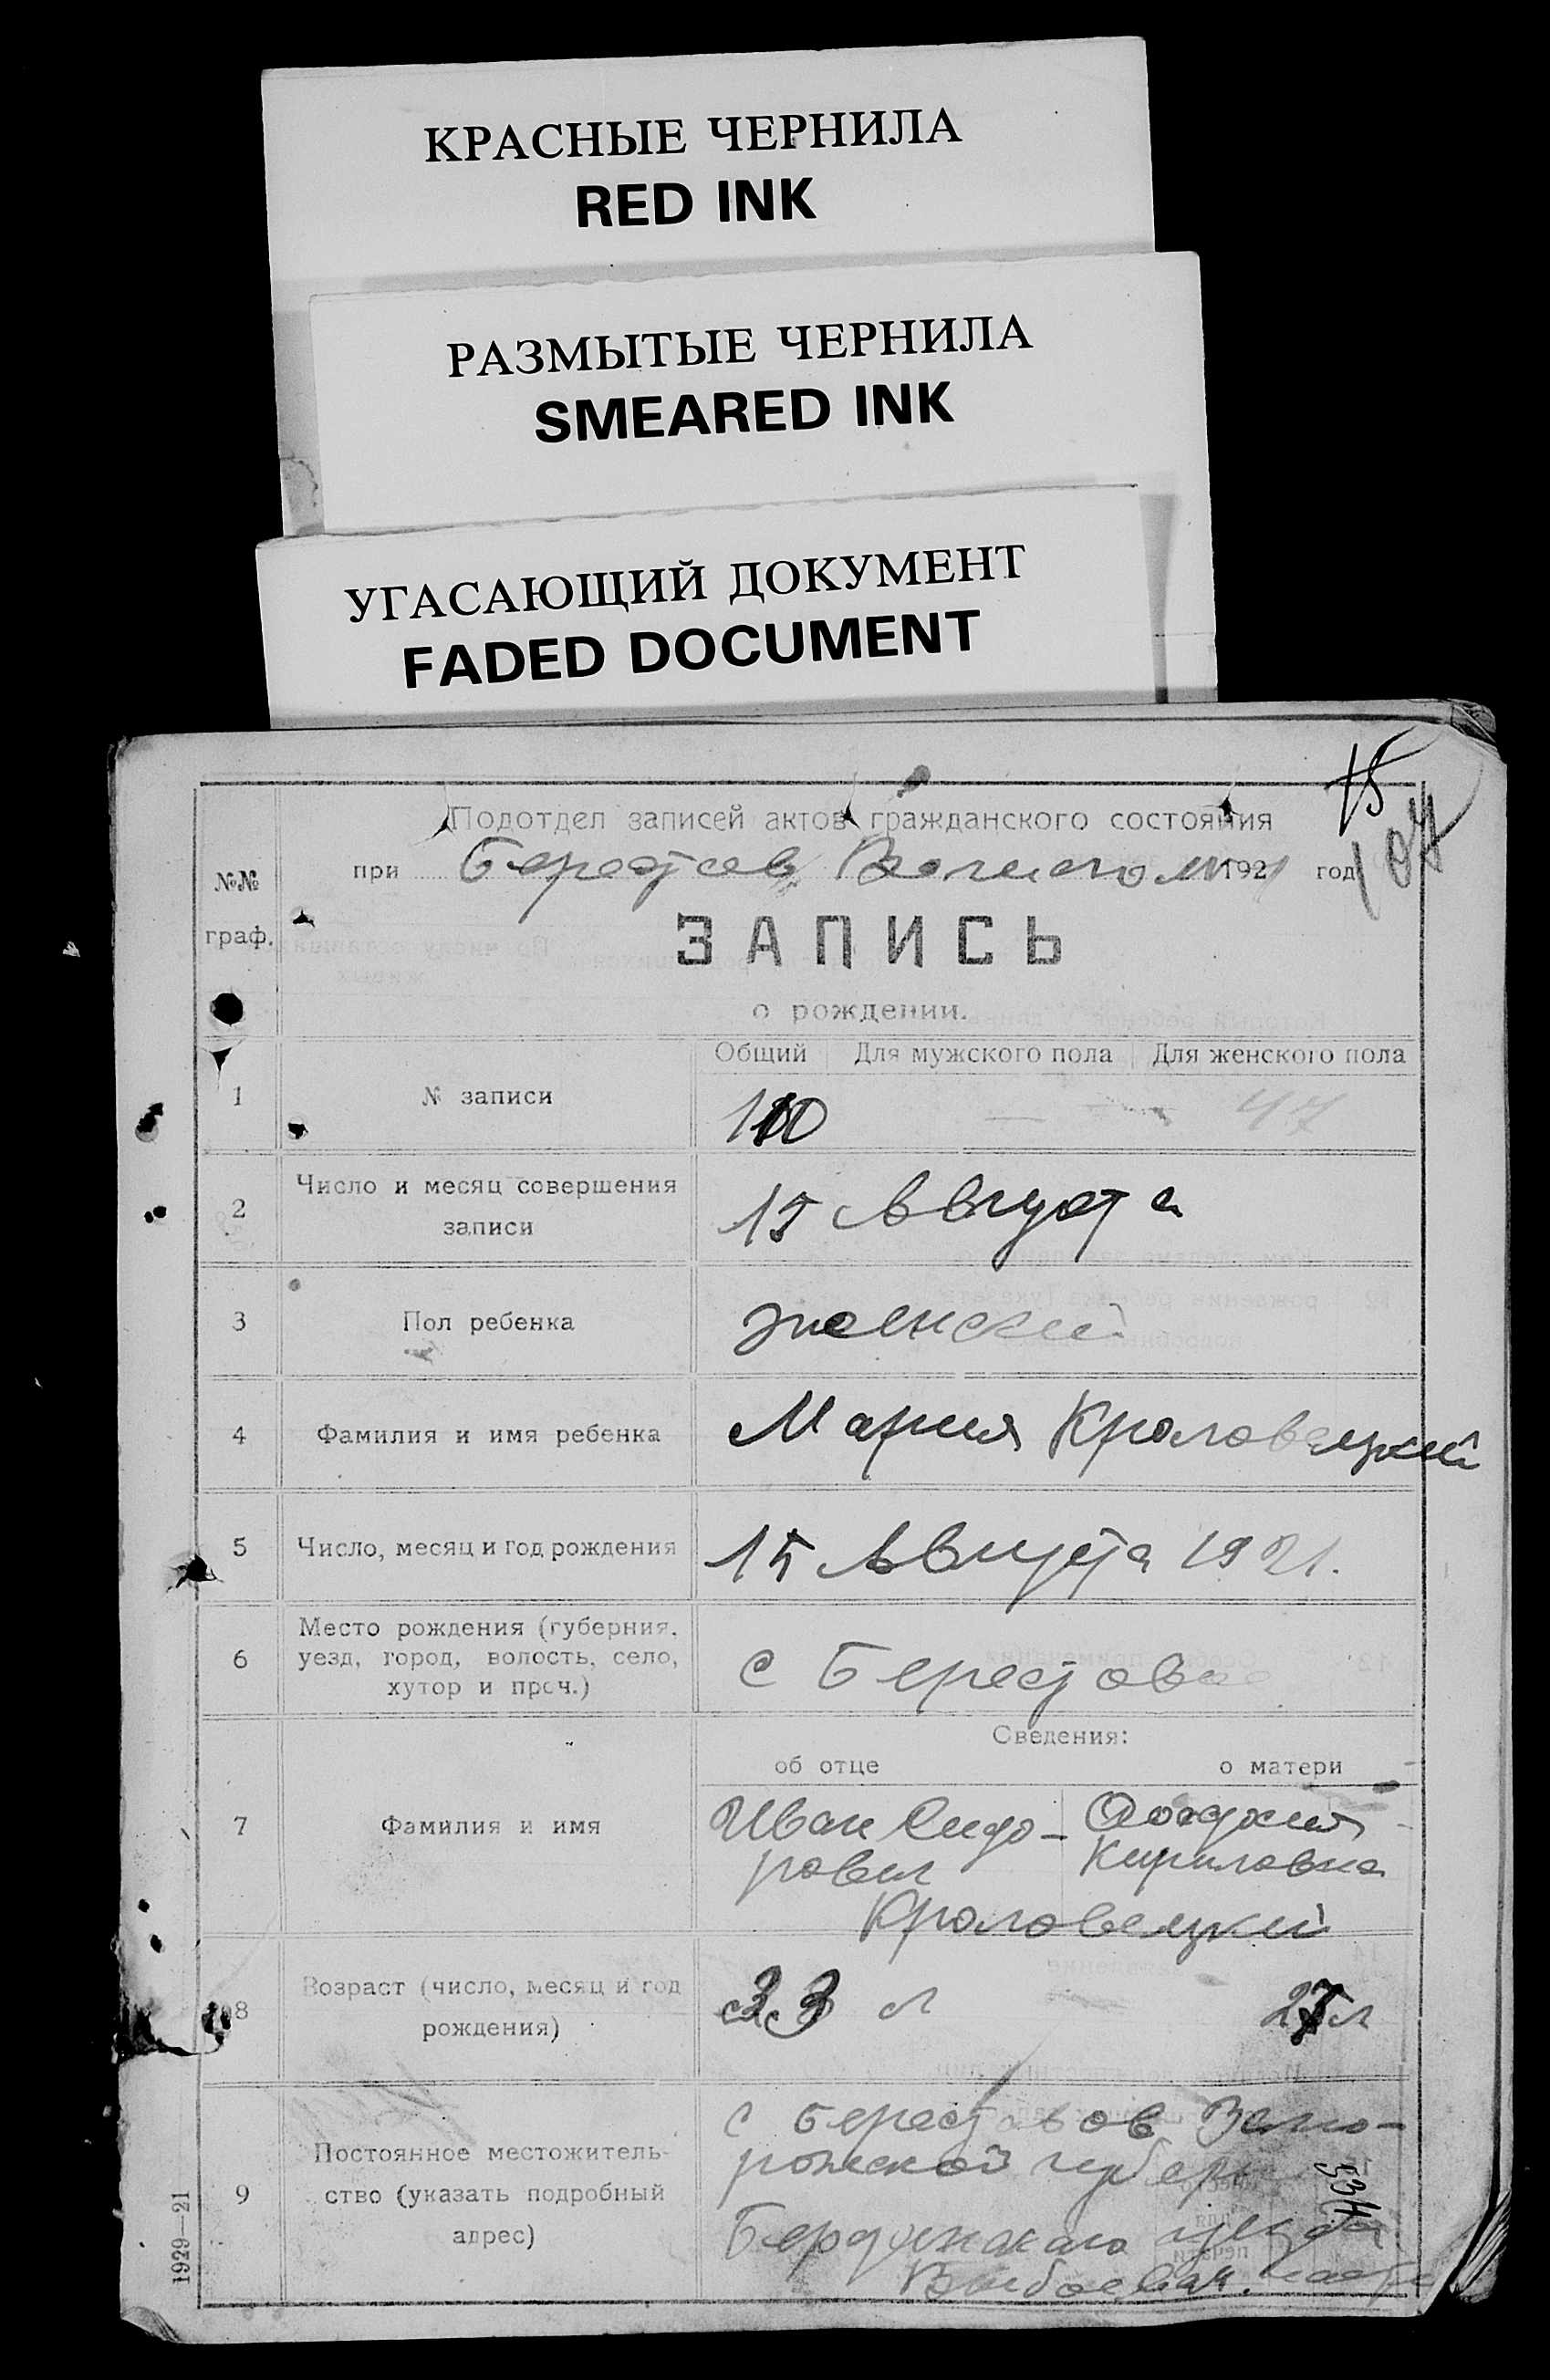 КРАСНЫЕ ЧЕРНИЛА
RED INK
РАЗМЫТЫЕ ЧЕРНИЛА
SMEARED INK
УГАСАЮЩИЙ ДОКУМЕНТ
FADED DOCUMENT
15
107
Подотдел записей актов гражданского состояния
№№ граф.
при Берестов 1921 год
ЗАПИСЬ
о рождении.
Общий Для мужского пола Для женского пола
1 № записи 110 — 47
2 Число и месяц совершения
записи
15 Августа
3 Пол ребенка женский
4 Фамилия и имя ребенка Мария Кроловецкий
5 Число, месяц и год рождения 15 Августа 1921.
6 Место рождения (губерния,
уезд, город, волость, село,
хутор и проч.)
с Берестовое
Сведения:
об отце о матери
7 Фамилия и имя
Иван Сидо-
рович
Кириловна
Кроловецкий
8 Возраст (число, месяц и год
рождения)
33 л 27 л
9 Постоянное местожитель-
ство (указать подробный
адрес)
с Берестовое Запо-
рожской губерн
Бердянскаго уезда
1929—21